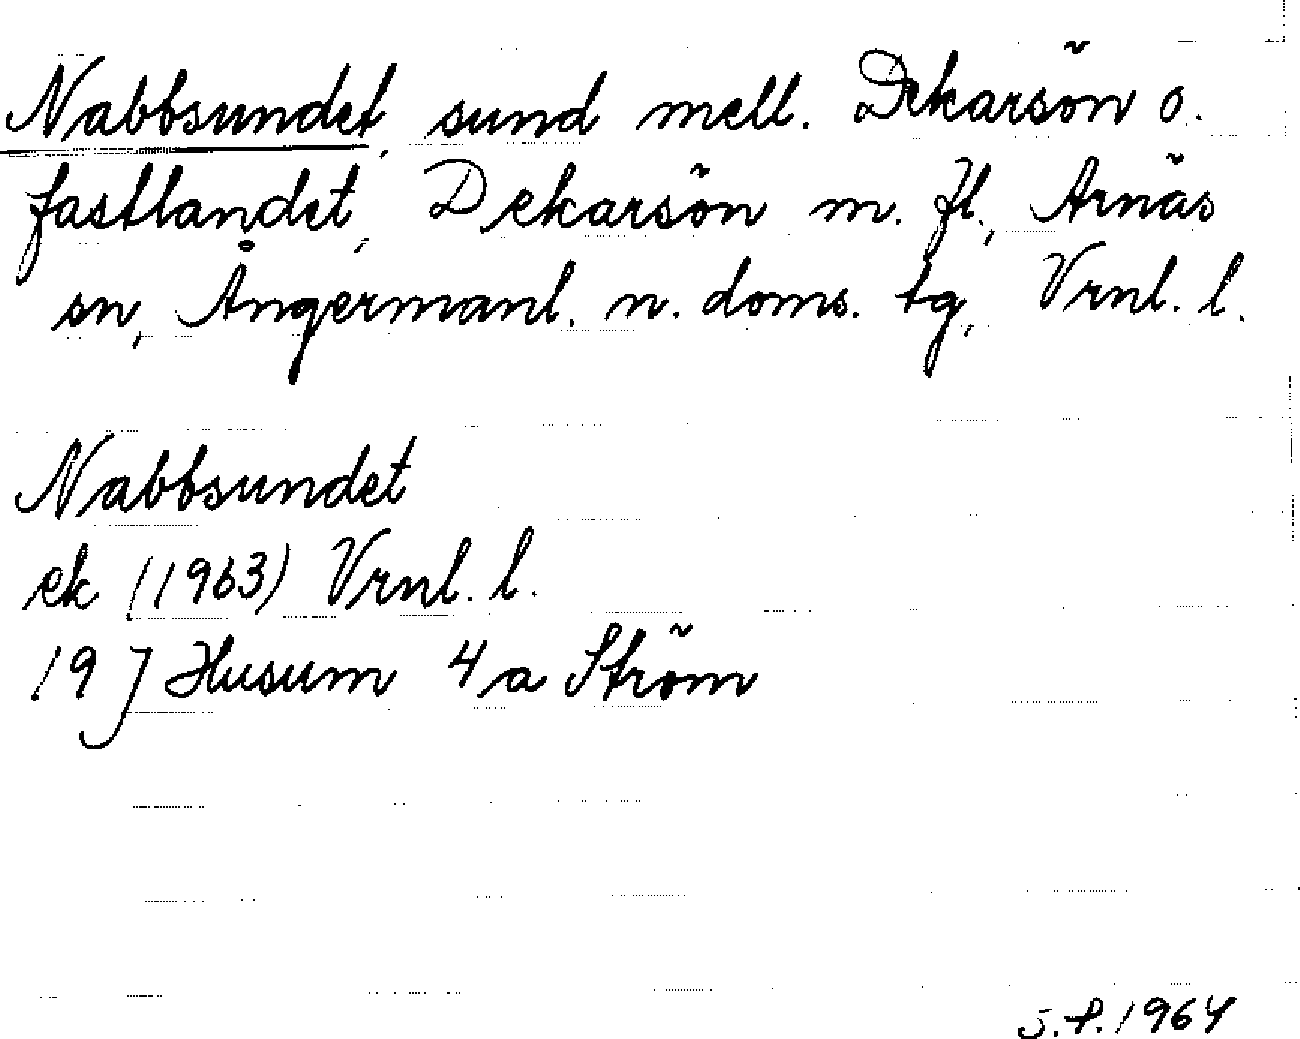 Nabbsundet, sund mell. Dekarsön o.
fastlandet, Dekarsön m. fl., Arnäs
sn, Ångermanl. n. doms. tg, Vrnl. l.
Nabbsundet
ek (1963) Vrnl. l.
19 J Husum 4 a Ström
S.P. 1964